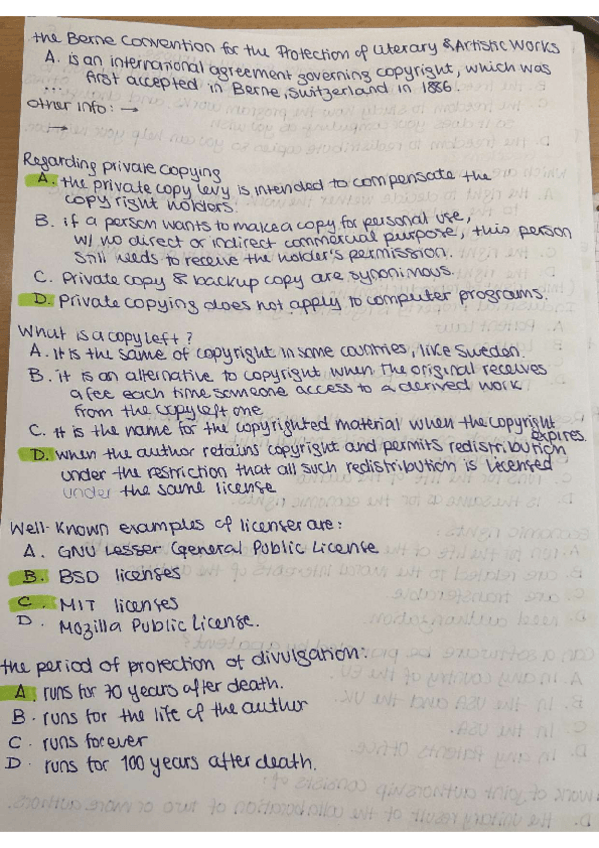 the Berne Convention for the Protection of Literary & Artistic Works
A. is an international agreement governing copyright, which was
first accepted in Berne, Switzerland in 1886.
...
other info: →
→
Regarding private copying
A. the private copy levy is intended to compensate the
copy right holders.
B. if a person wants to make a copy for personal use,
w/ no direct or indirect commercial purpose, this person
still needs to receive the holder's permission.
C. Private copy & backup copy are synonimous.
D. Private copying does not apply to computer programs.
What is a copyleft?
A. It is the same of copyright in some countries, like Sweden.
B. it is an alternative to copyright when the original receives
a fee each time someone access to a derived work
from the copyleft one
C. It is the name for the copyrighted material when the copyright
expires.
D. when the author retains copyright and permits redistribution
under the restriction that all such redistribution is licensed
under the same license
Well-Known examples of licenser are:
A. GNU Lesser General Public License
B. BSD licenses
C. MIT licenses
D. Mozilla Public License.
the period of protection of divulgation:
A. runs for 70 years after death.
B. runs for the life of the author
C. runs forever
D. runs for 100 years after death.